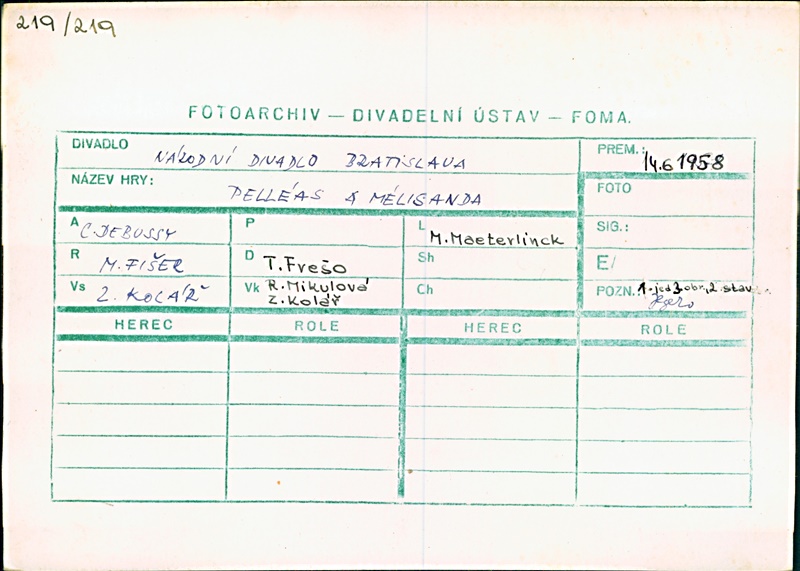 219/219
FOTOARCHIV — DIVADELNÍ ÚSTAV — FOMA.
DIVADLO NÁRODNÍ DIVADLO BRATISLAVA
PREM.: 14.6 1958
NÁZEV HRY: PELLÉAS A MÉLISANDA
FOTO
A C. DEBUSSY
P
L M. Maeterlinck
SIG.:
R M. FIŠER
D T. Frešo
Sh
E/
Vs Z. KOLÁŘ
Vk R. Mikulová
Z. Kolář
Ch
POZN. 1-jed 3.obr., 2. stav
HEREC ROLE HEREC ROLE